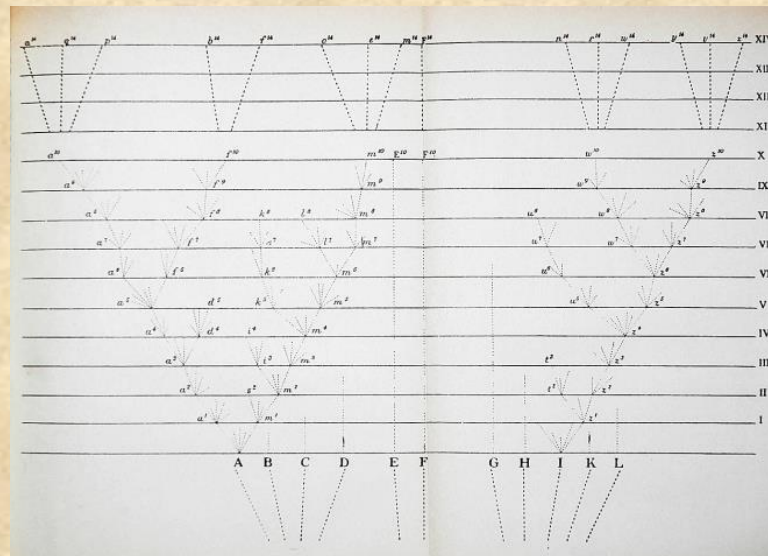 a¹⁴ q¹⁴ p¹⁴ b¹⁴ f¹⁴ o¹⁴ e¹⁴ m¹⁴ F¹⁴ n¹⁴ r¹⁴ w¹⁴ y¹⁴ v¹⁴ z¹⁴ XIV
XII
XII
XI
a¹⁰ f¹⁰ m¹⁰ E¹⁰ F¹⁰ w¹⁰ z¹⁰ X
a⁹ f⁹ m⁹ w⁹ z⁹ IX
a⁸ f⁸ k⁸ l⁸ m⁸ u⁸ w⁸ z⁸ VI
a⁷ f⁷ l⁷ m⁷ u⁷ w⁷ z⁷ VI
a⁶ f⁶ k⁶ m⁶ u⁶ z⁶ VI
a⁵ d⁵ k⁵ m⁵ u⁵ z⁵ V
a⁴ d⁴ i⁴ m⁴ z⁴ IV
a³ i³ m³ t³ z³ III
a² s² m² t² z² II
a¹ m¹ z¹ I
A B C D E F G H I K L